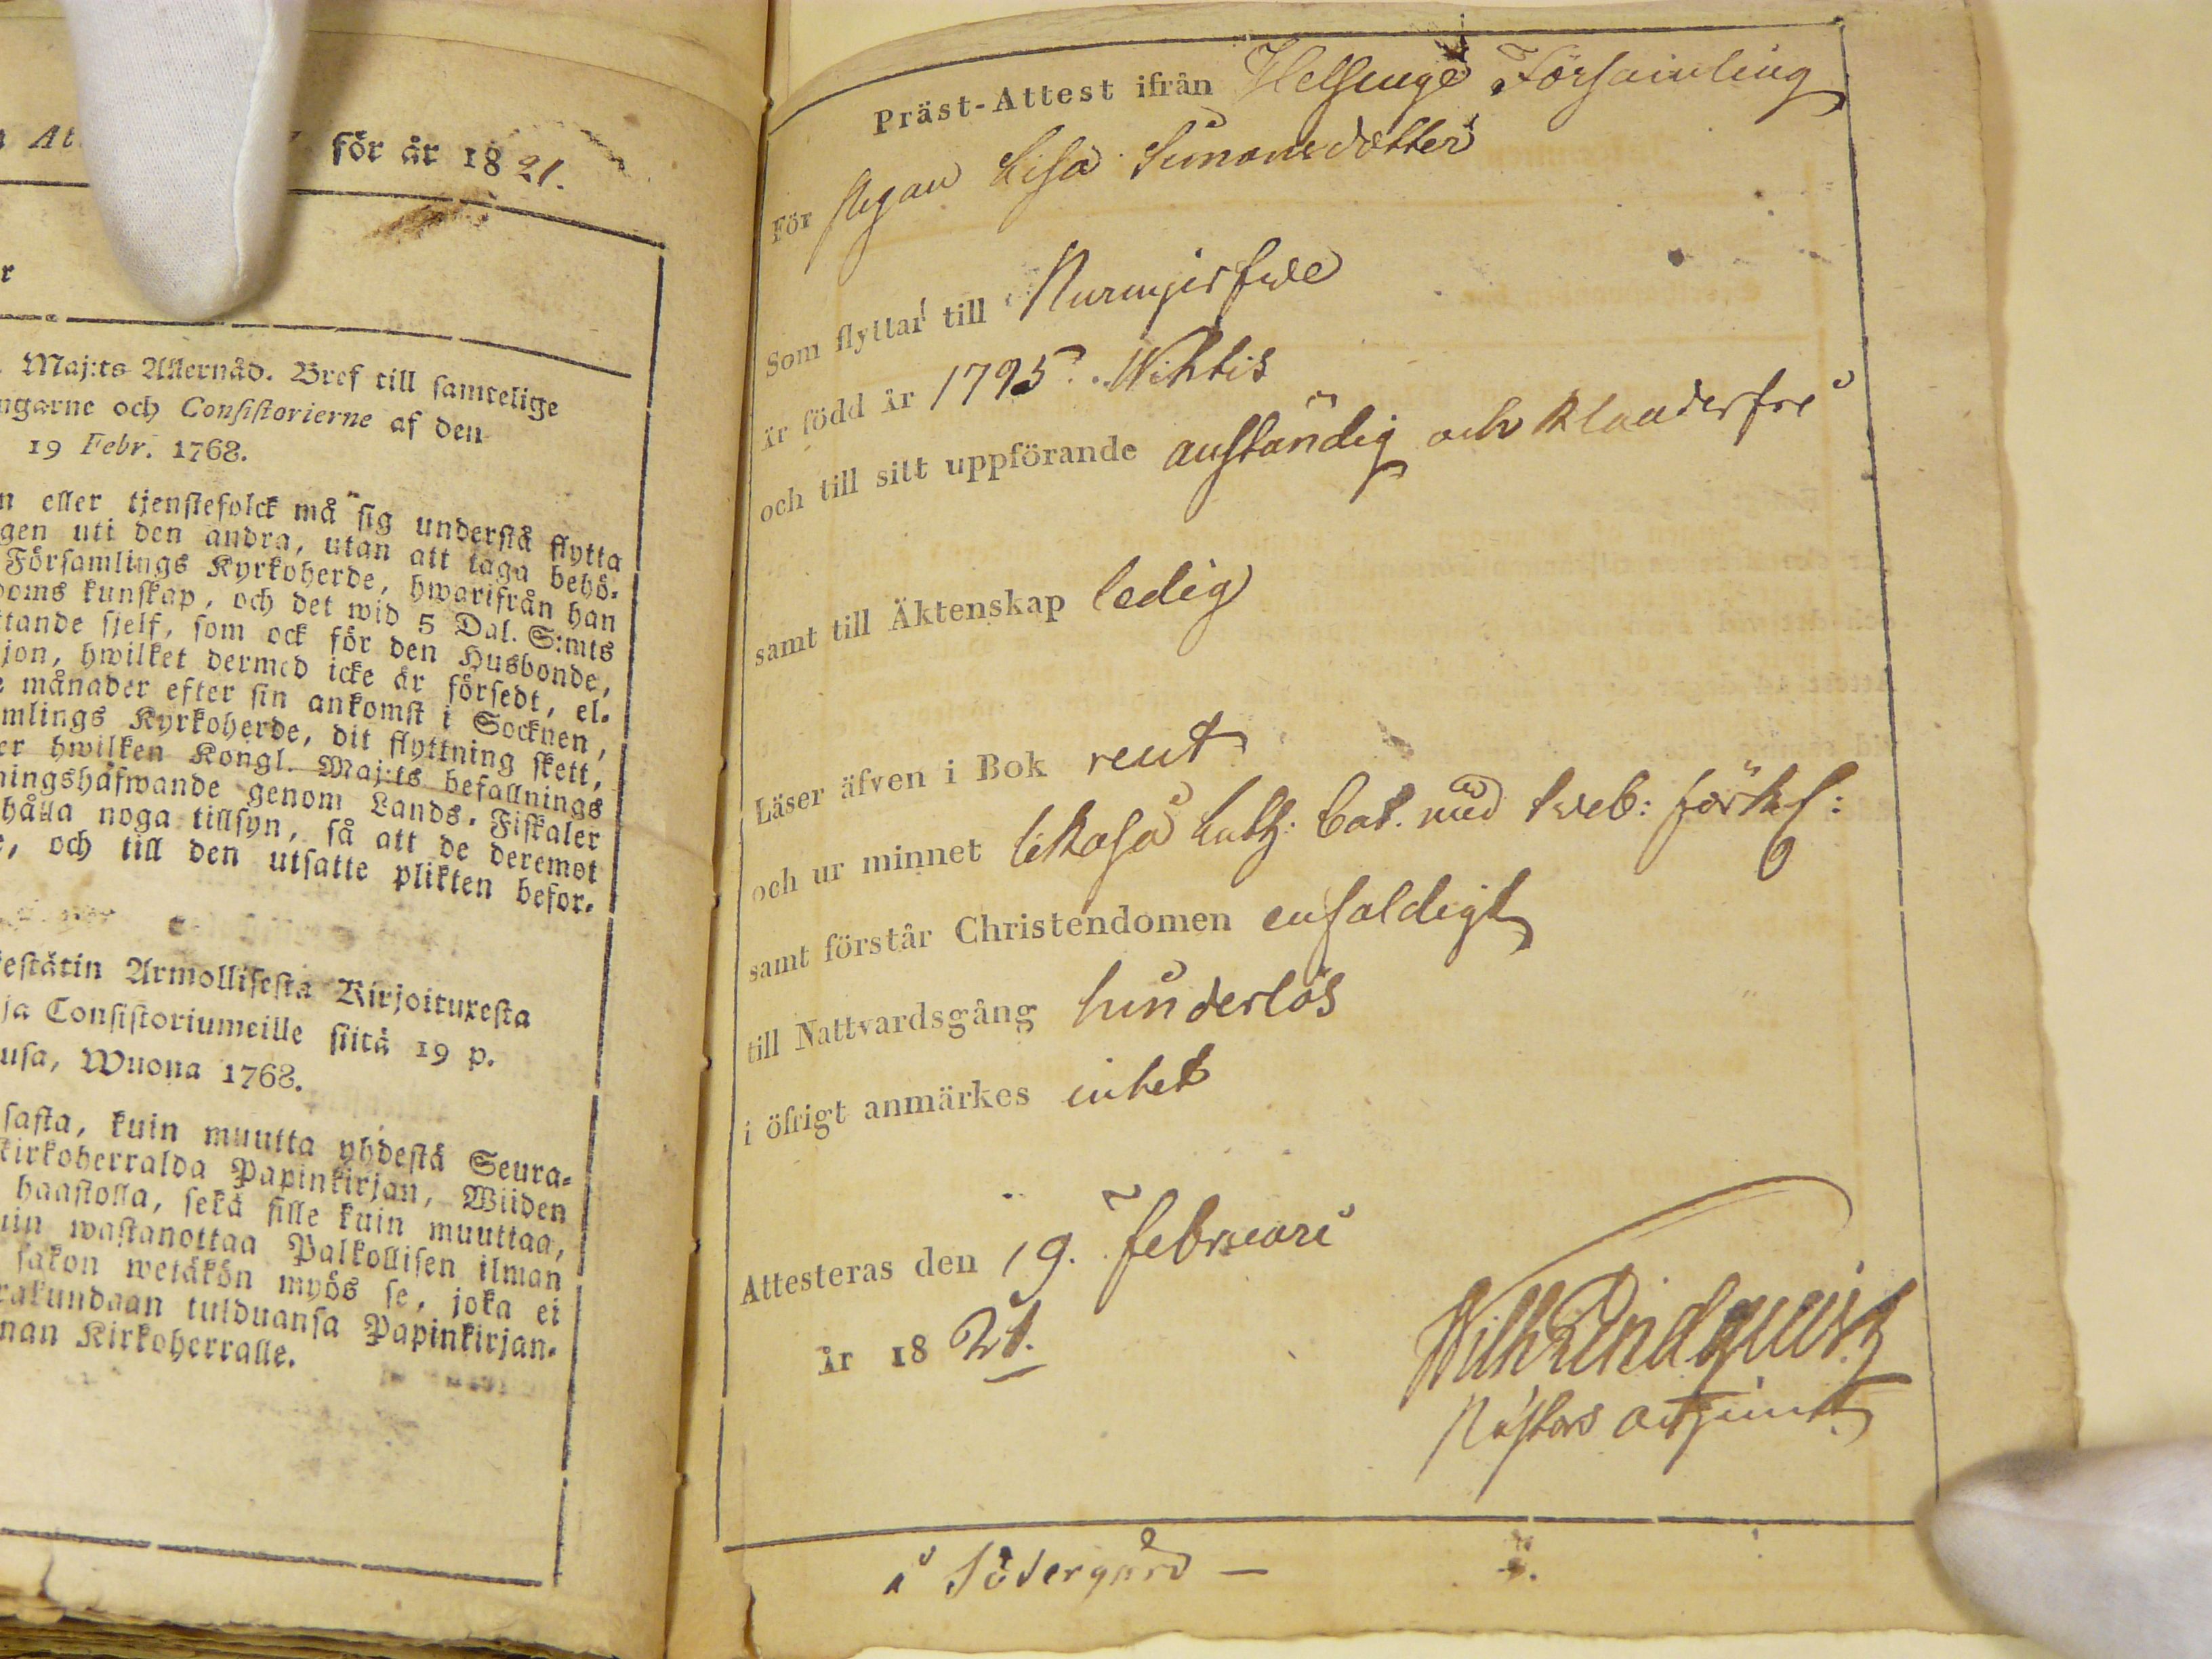 för år 1821.
Maj:ts Allernåd. Bref till samtelige
ngarne och Consistorierne af den
19 Febr. 1768.
n eller tjenstefolck må sig understå flytta
gen uti den andra, utan att taga behö-
Församlings Kyrkoherde, hwarifrån han
doms kunskap, och det wid 5 Dal. S:mts
ttande sjelf, som ock för den Husbonde,
jon, hwilket dermed icke är försedt, el-
e månader efter sin ankomst i Socknen,
mlings Kyrkoherde, dit flyttning skett,
er hwilken Kongl. Maj:ts befallnings
ningshafwande genom Lands-Fiskaler
hålla noga tillsyn, så att de deremot
e, och till den utsatte plikten befor-
estätin Armollisesta Kirjoituxesta
ja Consistoriumeille siitä 19 p.
usa, Wuona 1768.
sasta, kuin muutta yhdestä Seura-
kirkoherralda Papinkirjan, Wiiden
haastolla, sekä sille kuin muuttaa,
uin wastanottaa Palkollisen ilman
sakon wetäkön myös se, joka ei
rakundaan tulduansa Papinkirjan-
nan Kirkoherralle.
Präst-Attest ifrån Helsinge Församling
För Pigan Lisa Simonsdotter
Som flyttar till Nurmijerfwe
är född år 1795. Wihtis
och till sitt uppförande anständig och klanderfri
samt till Äktenskap ledig
Läser äfven i Bok rent
och ur minnet likaså Luth: Cat. med Sveb: förkl:
samt förstår Christendomen enfaldigt
till Nattvardsgång hinderlös
i öfrigt anmärkes intet
Attesteras den 19. Februari
år 1821.
Wilh Lindquist
Pastors adjunct
i Södergård —